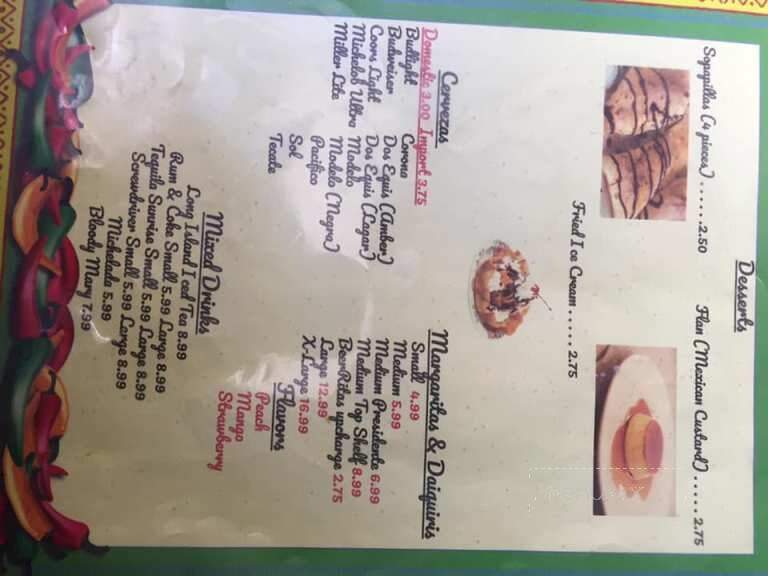 Desserts
Sopapillas (4 pieces)......2.50
Flan (Mexican Custard).....2.75
Fried Ice Cream.....2.75
Cervezas
Domestic 3.00 Import 3.75
Budlight
Budweiser
Coors Light
Michelob Ultra
Miller Lite
Corona
Dos Equis (Amber)
Dos Equis (Lagar)
Modelo
Modelo (Negra)
Pacifico
Sol
Tecate
Margaritas & Daiquiris
Small 4.99
Medium 5.99
Medium Presidente 6.99
Medium Top Shelf 8.99
BeerRitas upcharge 2.75
Large 12.99
X-Large 16.99
Flavors
Peach
Mango
Strawberry
Mixed Drinks
Long Island Iced Tea 8.99
Rum & Coke Small 5.99 Large 8.99
Tequila Sunrise Small 5.99 Large 8.99
Screwdriver Small 5.99 Large 8.99
Michelada 5.99
Bloody Mary 7.99